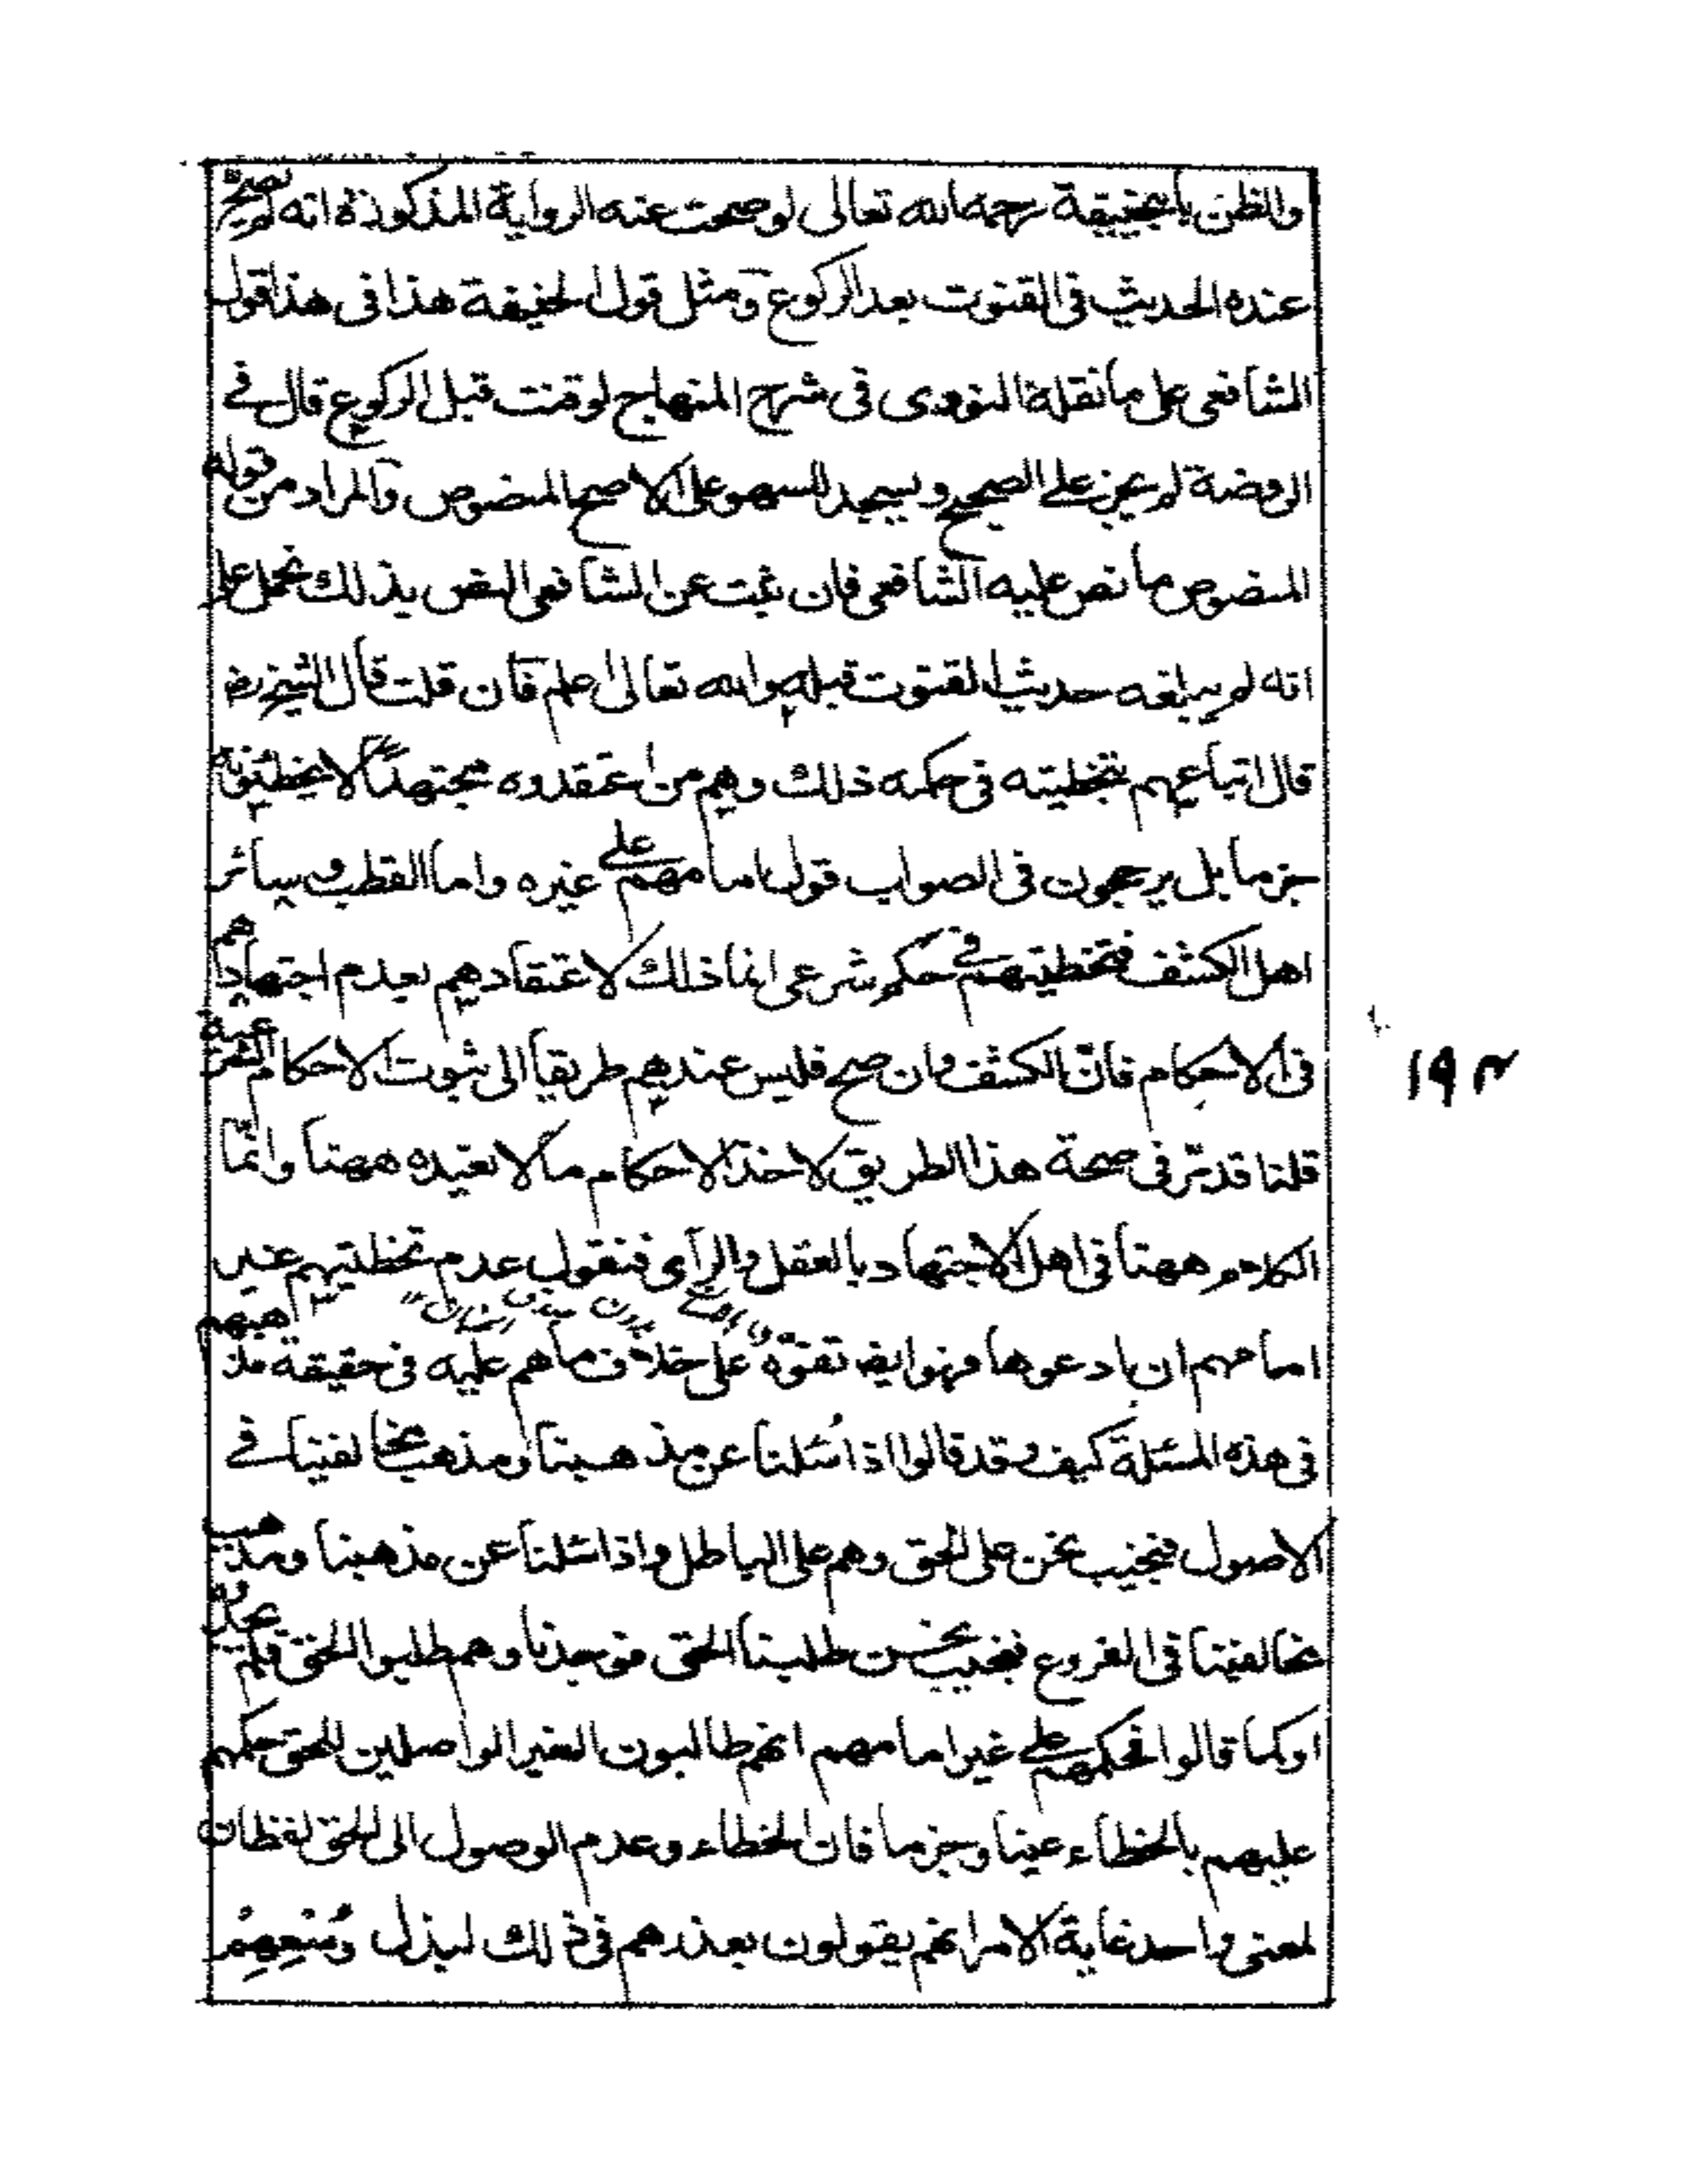 والظن بابحنيفة رحمه الله تعالى لو صحت عنه الرواية المذكورة انه لم يصح
عنده الحديث فى القنوت بعد الركوع ومثل قول الحنيفة هذا فى هذا قول
الشافعى على ما نقله النووى فى شرح المنهاج لو قنت قبل الركوع قال فى
الروضة لم يجز على الصحيح ويسجد للسهو على الاصح المنصوص والمراد من قوله
المنصوص ما نص عليه الشافعى فان ثبت عن الشافعى النص بذلك نحمل على
انه لم يبلغه حديث القنوت قبله والله تعالى اعلم فان قلت قال الشيخ رض
قال اتباعهم بتخطيته فى حكمه ذلك وهم من اعتقدوه مجتهدا لا يخطئونه
جزما بل يرجحون فى الصواب قول امامهم على غيره واما القطب وسائر
اهل الكشف فتخطيتهم فى حكم شرعى انما ذلك لاعتقادهم بعدم اجتهادهم
فى الاحكام فان الكشف وان صح فليس عندهم طريقا الى ثبوت الاحكام الشرعية
قلنا قد مر فى صحة هذا الطريق لاخذ الاحكام ما لا نعيده ههنا وانما
الكلام ههنا فى اهل الاجتهاد بالعقل والرآى فنقول عدم تخطيتهم غير
امامهم ان ادعوها فهوايض تفوه على خلاف ما هم عليه فى حقيقة مذاهبهم
فى هذه المسئلة كيف وقد قالوا اذا سُئلنا عن مذهبنا ومذهب مخالفينا فى
الاصول فنجيب نحن على الحق وهم على الباطل واذا سئلنا عن مذهبنا ومذهب
مخالفينا فى الفروع فنجيب نحن طلبنا الحق فوجدنا وهم طلبوا الحق فلم يجدوا
اوكما قالوا فحكمهم على غير امامهم انهم طالبون الغير الواصلين للحق حكمهم
عليهم بالخطاء عينا وجزما فان الخطاء وعدم الوصول الى الحق لفظان
لمعنى واحد غاية الامر انهم يقولون بعذرهم فى ذلك لبذل وُسْعِهِمْ
١٩٣